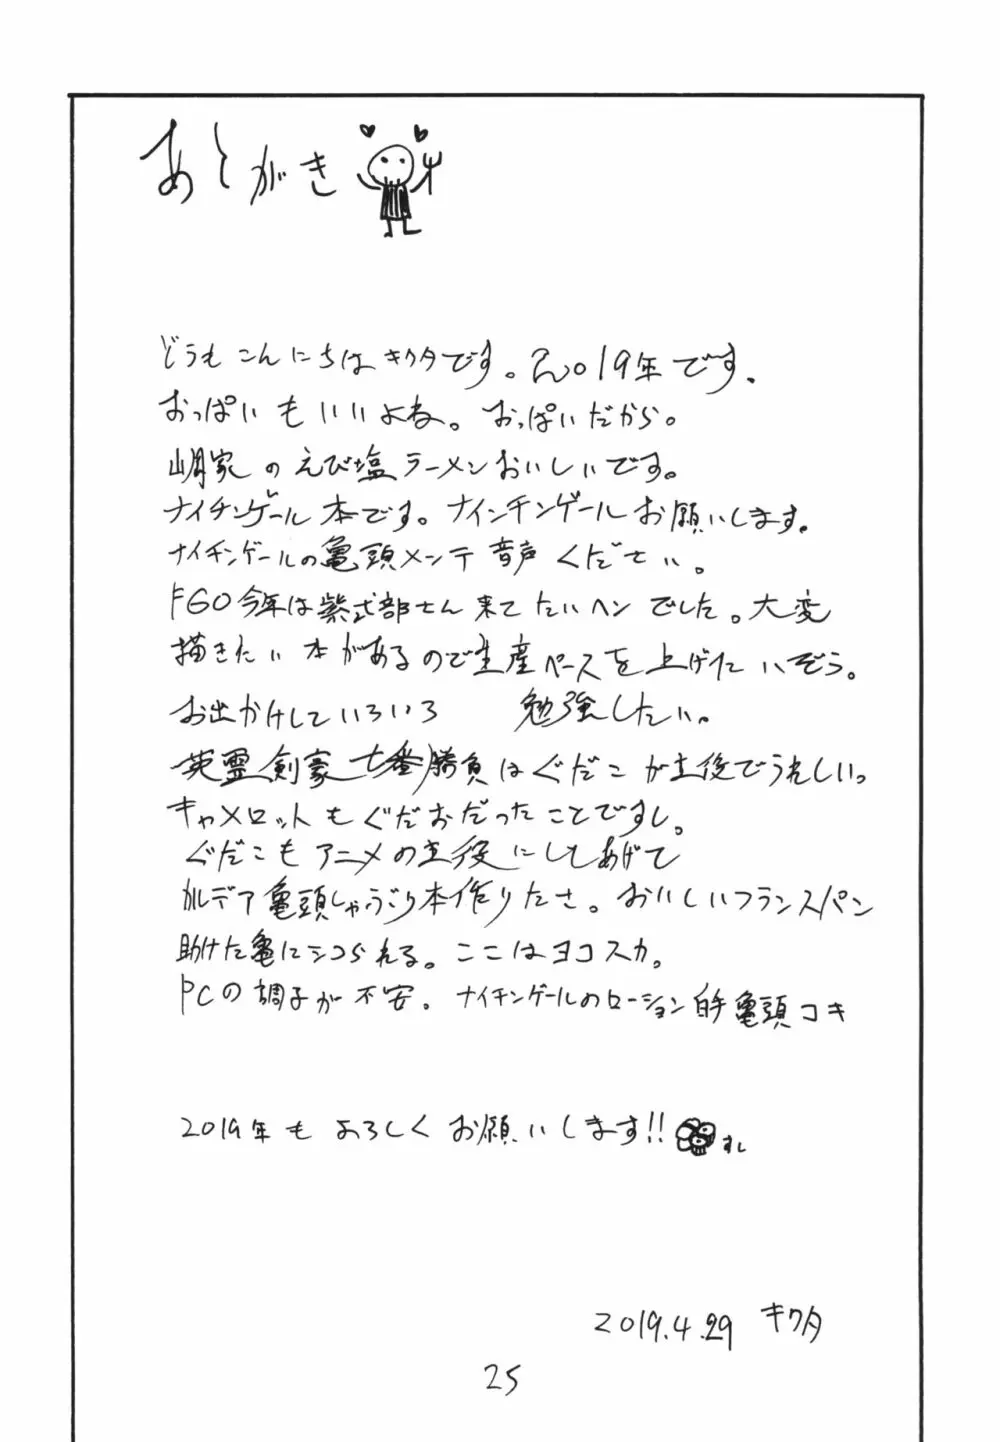 あとがき
どうもこんにちはキクタです。2019年です.
おっぱいもいいよね。おっぱいだから。
家のえび塩ラーメンおいしいです。
ナイチンゲール本です。ナインチンゲールお願いします。
ナイチンゲールの亀頭メンテ音声ください。
FGO今年は紫式部さん来てたいヘンでした。大変
描きたい本があるので生産ペースを上げたいぞう。
お出かけしていろいろ 勉強したい。
英霊剣豪七番勝負はぐだこが主役でうれしい。
キャメロットもぐだおだったことですし。
ぐだこもアニメの主役にしてあげて
カルデア亀頭しゃぶり本作りたさ。おいしいフランスパン
助けた亀にシコられる。ここはヨコスカ。
PCの調子が不安。ナイチンゲールのローション 亀頭コキ
2019年もよろしくお願いします!!
すし
2019.4.29 キクタ
25